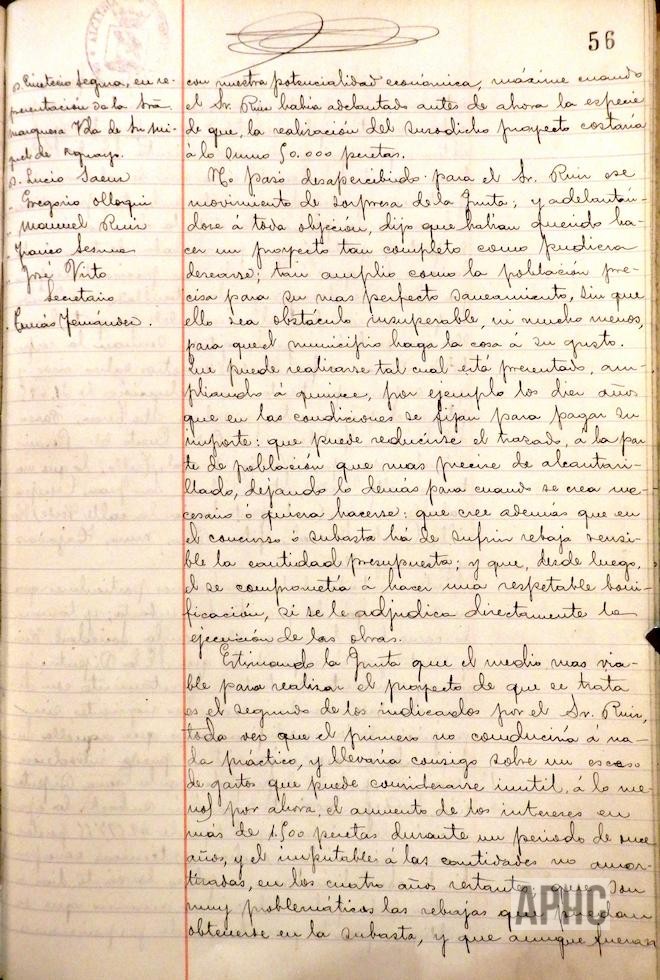 56
D. Emeterio Segura, en re-
presentación de la Sra.
marquesa Vda de Sn Mi-
guel de Aguayo.
D. Lucio Saenz
" Gregorio Olloqui
" Manuel Ruiz
" Franco Sesma
" José Virto
Secretario
" Tomás Fernández.
con nuestra potencialidad económica, máxime cuando
el Sr. Ruiz había adelantado antes de ahora la especie
de que, la realización del susodicho proyecto costaría
á lo sumo 50.000 pesetas.
No pasó desapercibido para el Sr. Ruiz ese
movimiento de sorpresa de la Junta; y adelantán-
dose á toda objeción, dijo que habían querido ha-
cer un proyecto tan completo como pudiera
desearse; tan amplio como la población pre-
cisa para su mas perfecto saneamiento, sin que
ello sea obstáculo insuperable, ni mucho menos,
para que el municipio haga la cosa á su gusto.
Que puede realizarse tal cual está presentado, am-
pliando á quince, por ejemplo los diez años
que en las condiciones se fijan para pagar su
importe: que puede reducirse el trazado, á la par-
te de población que mas precise de alcantari-
llado, dejando lo demás para cuando se crea ne-
cesario ó quiera hacerse: que cree además que en
el concurso ó subasta há de sufrir rebaja sensi-
ble la cantidad presupuesta; y que, desde luego,
él se comprometía á hacer una respetable boni-
ficación, si se le adjudica directamente la
ejecución de las obras.
Estimando la Junta que el medio mas via-
ble para realizar el proyecto de que se trata
es el segundo de los indicados por el Sr. Ruiz,
toda vez que el primero no conduciría á na-
da práctico, y llevaría consigo sobre un exceso
de gastos que puede considerarse inutil, á lo me-
nos por ahora, el aumento de los intereses en
más de 1.500 pesetas durante un periodo de once
años, y el imputable á las cantidades no amor-
tizadas, en los cuatro años restantes; que son
muy problemáticas las rebajas que puedan
obtenerse en la subasta, y que aunque fueran
APHC